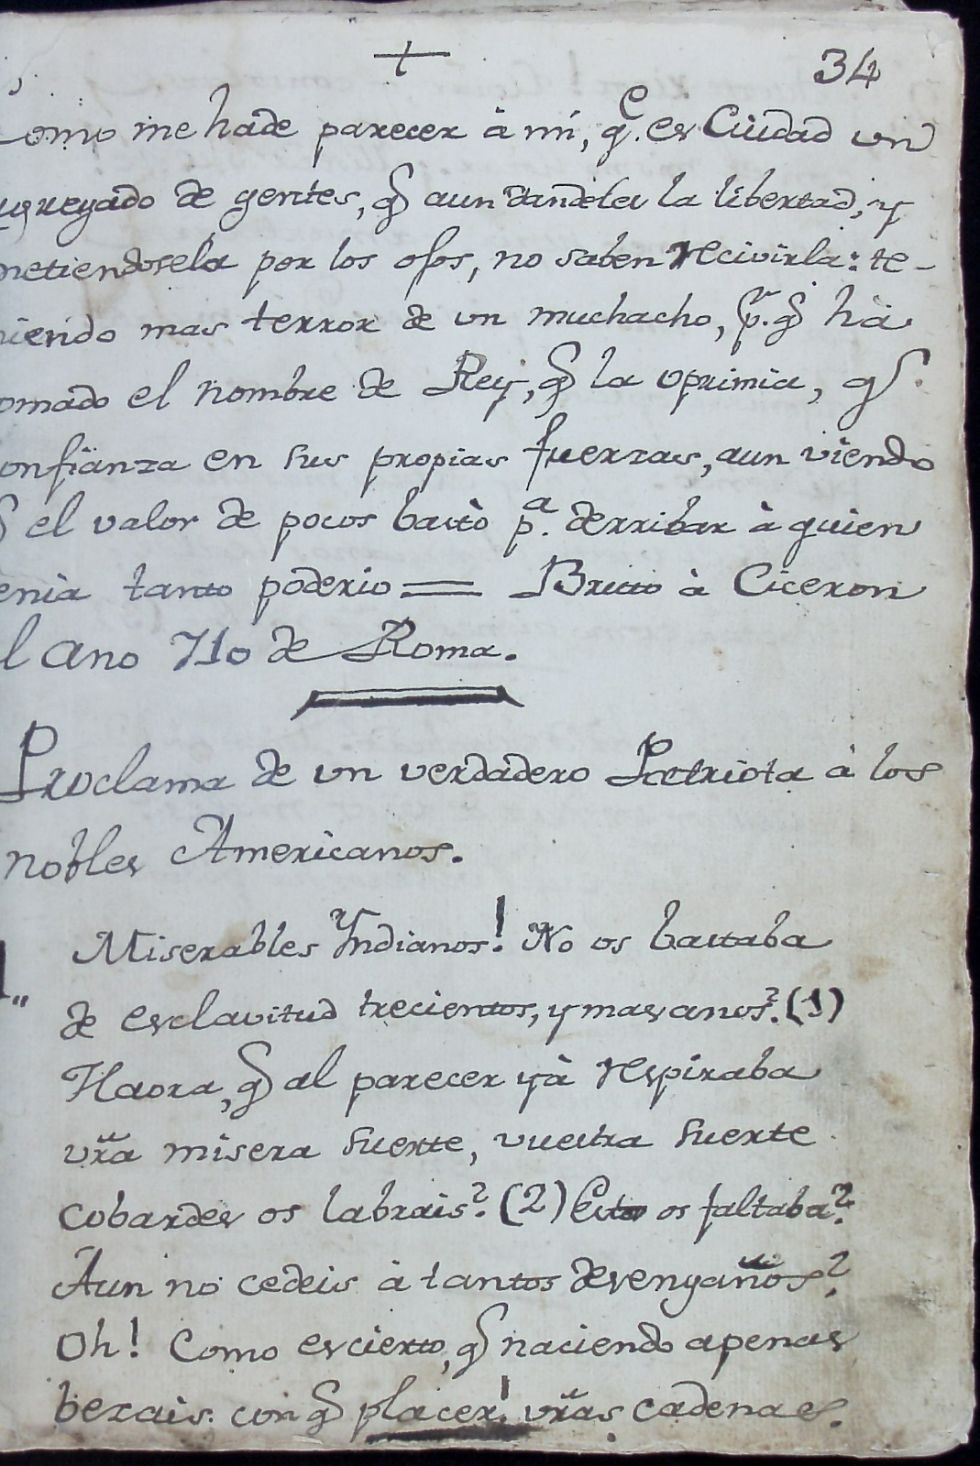 34
como me hade parecer à mi, q.e es Ciudad un
agregado de gentes, q aun dandoles la libertad, y
metiendosela por los ojos, no saben recivirla: te-
niendo mas terror de un muchacho, p.r q hà
tomado el nombre de Rey, q la oprimia, q.
confianza en sus propias fuerzas, aun viendo
q el valor de pocos bastò p.a derribar à quien
tenia tanto poderio = Bruto à Ciceron
el Año 710 de Roma.
Proclama de un verdadero Patriota à los
nobles Americanos.
Miserables Yndianos! No os bastaba
de esclavitud trecientos, y mas anos? (1)
Haora, q al parecer yà respiraba
vr̃a misera suerte, vuestra suerte
cobardes os labrais? (2) Esto os faltaba?
Aun no cedeis à tantos desengaños?
Oh! Como es cierto, q naciendo apenas
besais con q placer! vr̃as cadenas.